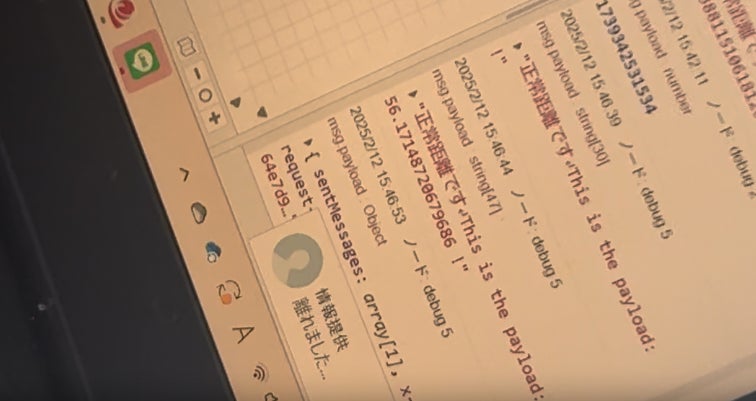 2025/2/12 15:42:11 ノード: debug
msg.payload : number
1739342531534
2025/2/12 15:46:39 ノード: debug 5
msg.payload : string[30]
"正常距離です↵This is the payload:
!"
2025/2/12 15:46:44 ノード: debug 5
msg.payload : string[47]
"正常距離です↵This is the payload:
56.17148720679686 !"
2025/2/12 15:46:53 ノード: debug 5
msg.payload : Object
{ sentMessages: array[1], x-
request-
64e7d9…
情報提供
離れました…
A